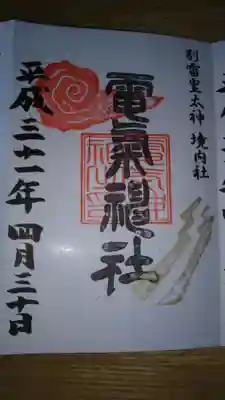 別雷皇太神 境内社
電氣神社
平成三十一年四月三十日